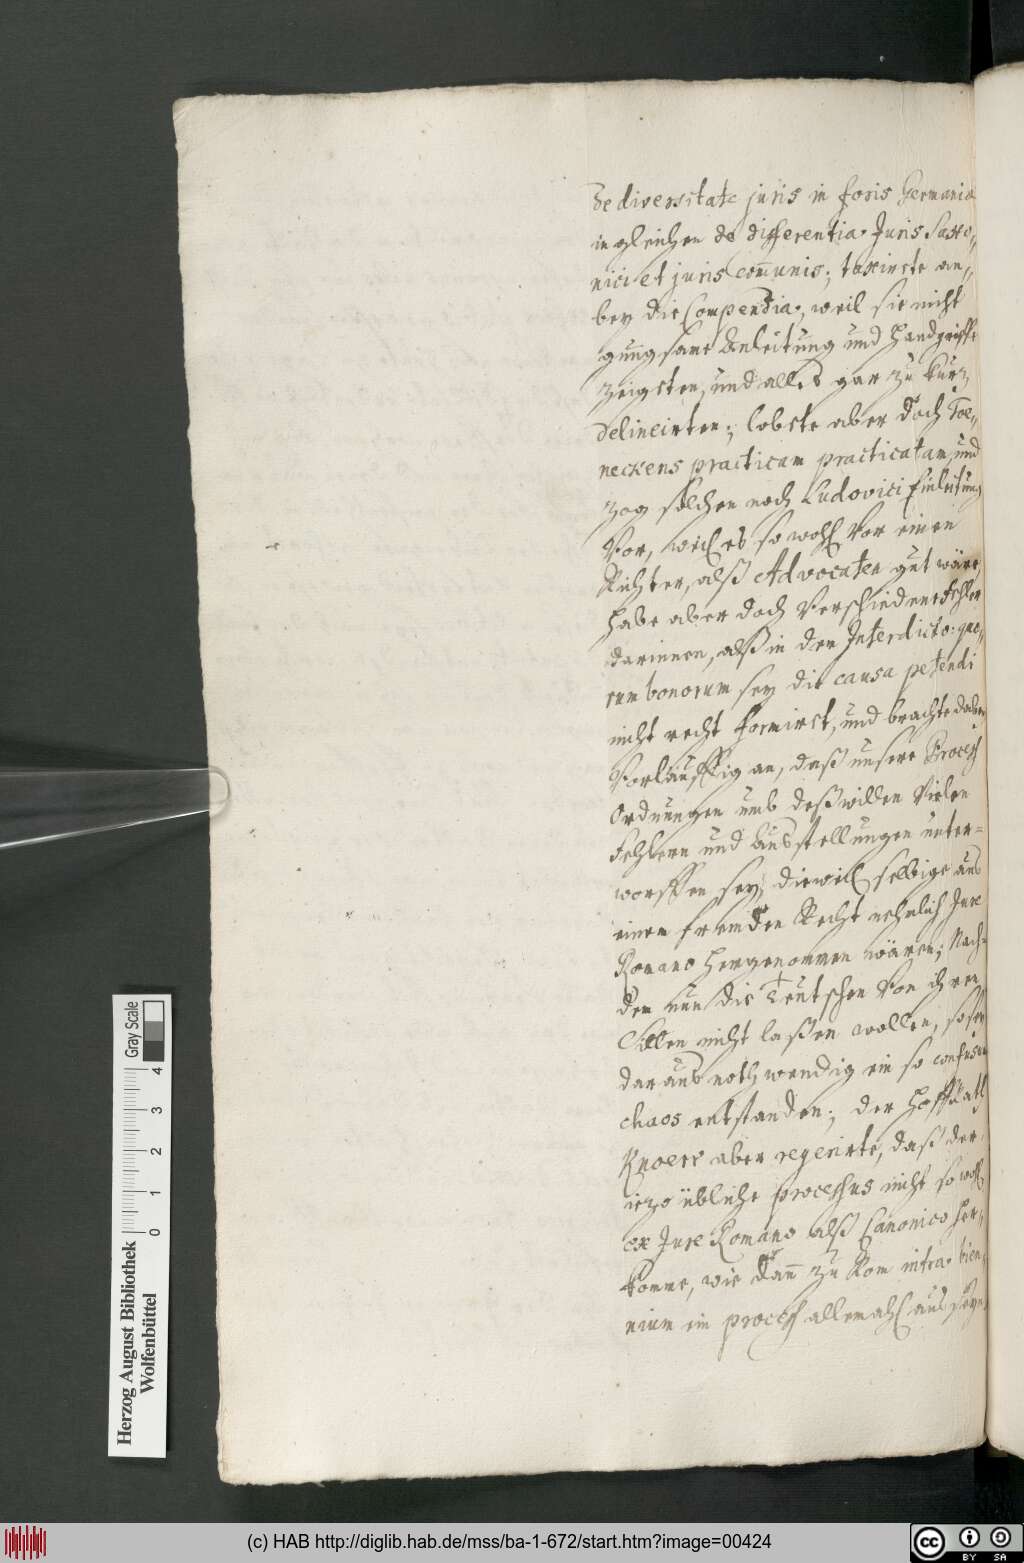 de diversitate juris in foris Germaniæ
ingleichen de differentia Juris Saxo-
nici et juris com̄unis; taxirete an-
bey die Compendia, weil sie nicht
gungsame Anleitung und Handgriffe
zeigeten, und alles gar zu kurz
delineirten; lobete aber doch Toe-
neckens practicam practicatam, und
zog solchen noch Ludovici Einleitung
vor, weil es so wohl vor einen
Richter, alß Advocaten gut wäre,
habe aber doch verschiedene Fehler
darinnen, alß in den Interdicto: quo-
rum bonorum sey die causa petendi
nicht recht formiret, und brachte dabey
vorläuffig an, daß unsere Process
Ordnungen umb deßwillen vielen
Fehlern und Ausstellungen unter-
worffen sey, dieweil selbige aus
einem fremden Recht nehmlich Jure
Romano hergenommen wären; Nach-
dem nun die Teutschen von ihren
Sitten nicht laßen wollen, so sey
daraus nothwendig ein so confuses
chaos entstanden; der Hoffrath
Knoerr aber regerirte, daß der
iezo übliche processus nicht so wohl
ex Jure Romano alß Canonico her-
komme, wie dan̄ zu Rom intra bien-
nium ein process allemahl aus seyn
Herzog August Bibliothek
Wolfenbüttel
0 1 2 3 4
Gray Scale
(c) HAB http://diglib.hab.de/mss/ba-1-672/start.htm?image=00424
cc
BY SA